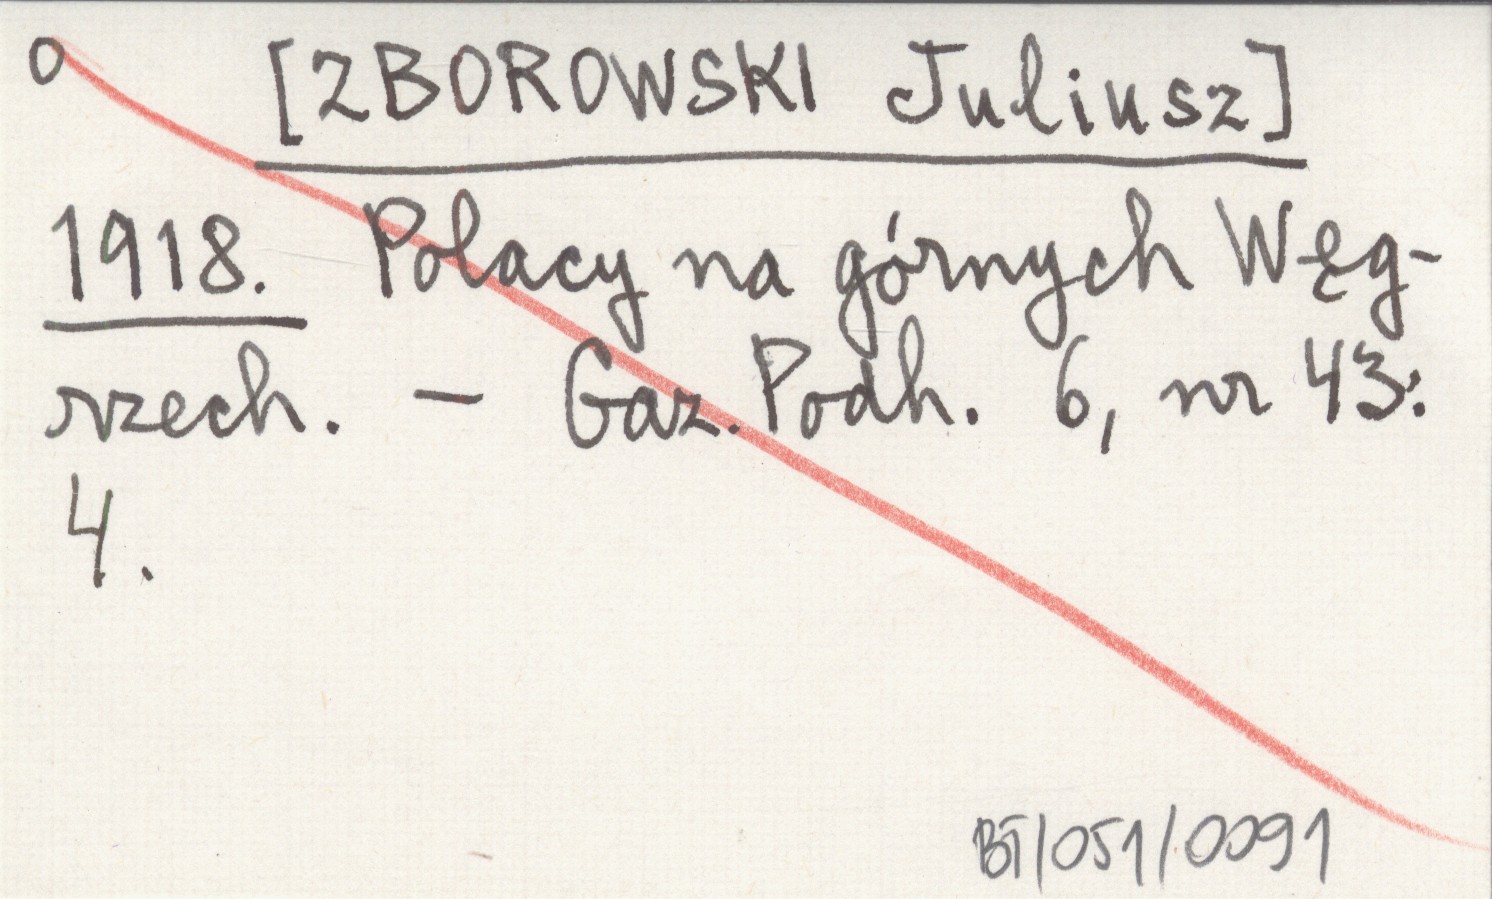 o [ZBOROWSKI Juliusz]
1918. Polacy na górnych Węg-
rzech. – Gaz. Podh. 6, nr 43:
4.
BT/051/0091